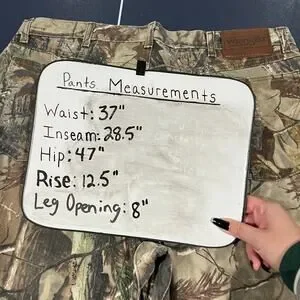 Pants Measurements
Waist: 37"
Inseam: 28.5"
Hip: 47"
Rise: 12.5"
Leg Opening: 8"